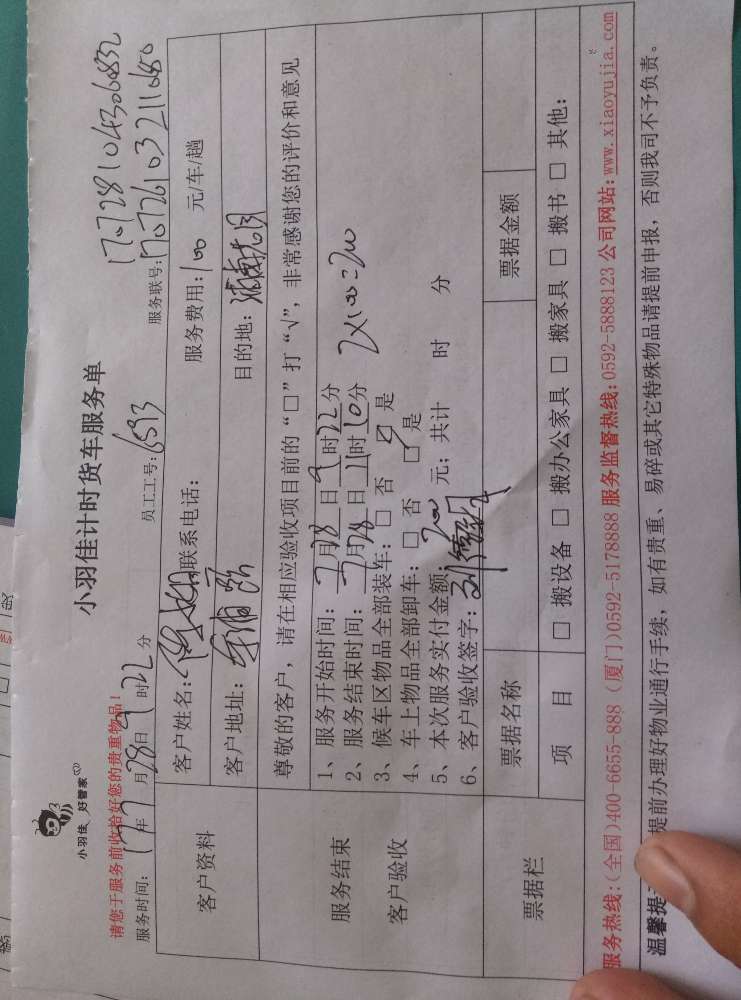 小羽佳 好管家
小羽佳计时货车服务单
170728104306832
请您于服务前收拾好您的贵重物品!
服务时间: 17 年 7 月 28 日 9 时 22 分 员工工号: 6593 服务联号: 170726103211680
客户资料
客户姓名: 联系电话: 服务费用: 100 元/车/趟
客户地址: 目的地:
尊敬的客户，请在相应验收项目前的“□”打“√”，非常感谢您的评价和意见
服务结束
客户验收
1、服务开始时间: 7月28日9时22分
2、服务结束时间: 7月28日11时10分 2×100=200
3、候车区物品全部装车: □ 否 ☑ 是
4、车上物品全部卸车: □ 否 ☑ 是
5、本次服务实付金额: 200 元; 共计 时 分
6、客户验收签字:
票据栏
票据名称 票据金额
项 目 □ 搬设备 □ 搬办公家具 □ 搬家具 □ 搬书 □ 其他:
服务热线:(全国)400-6655-888 (厦门)0592-5178888 服务监督热线:0592-5888123 公司网站:www.xiaoyujia.com
温馨提 提前办理好物业通行手续，如有贵重、易碎或其它特殊物品请提前申报，否则我司不予负责。